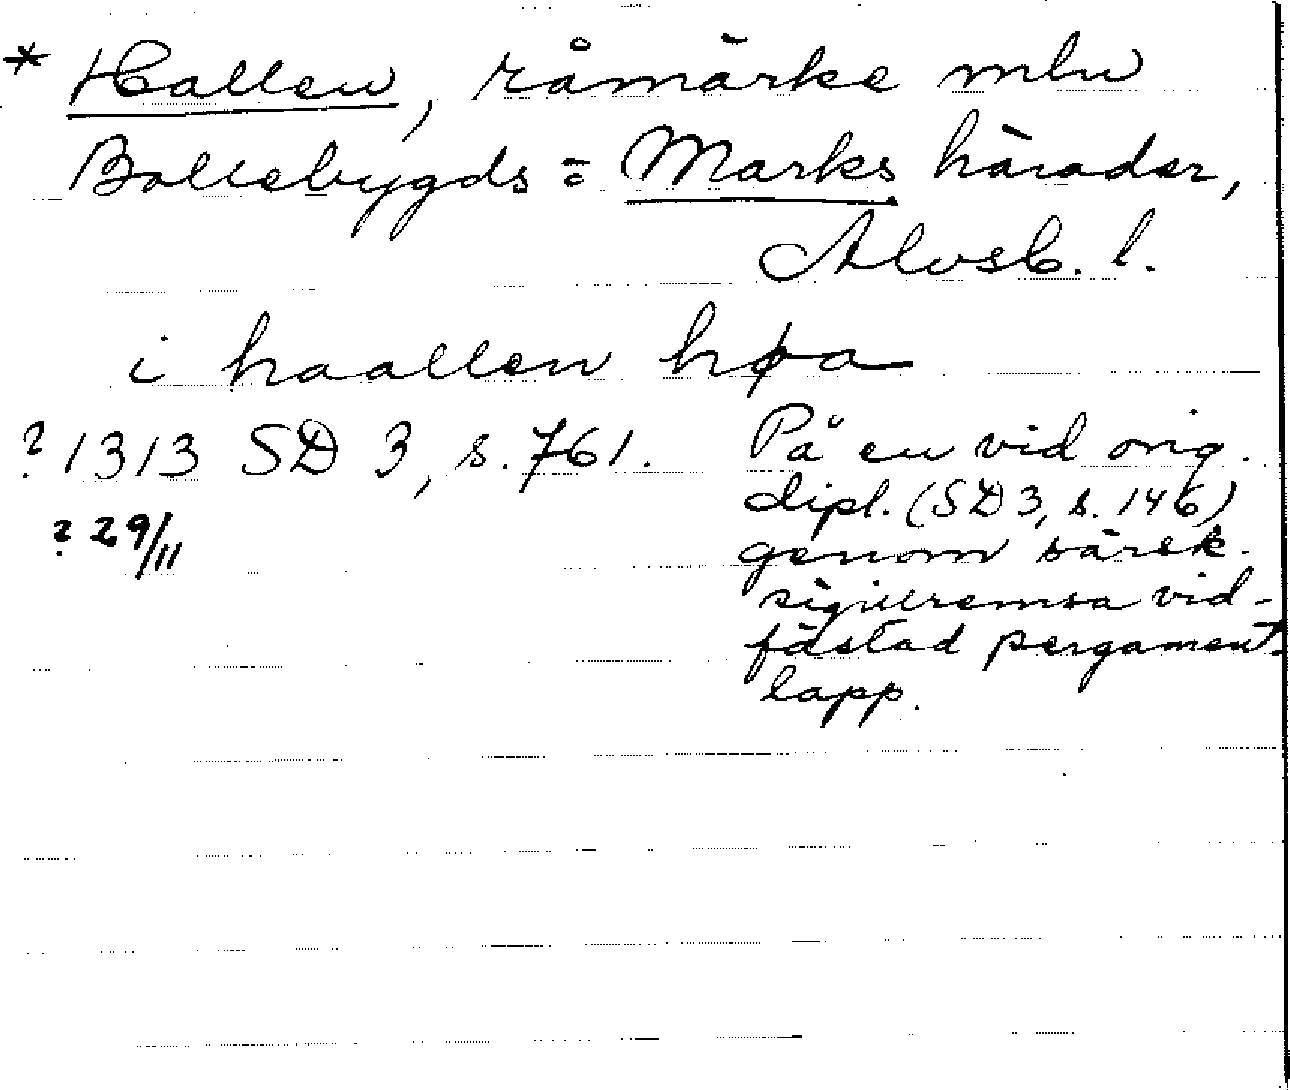 * Hallen, råmärke mln
Bollebygds= Marks härader,
Älvsb. l.
i haallen høa
? 1313 SD 3, s. 761.
? 29/11
På en vid orig.
dipl. (SD 3, s. 146)
genom särsk.
sigillremsa vid-
fästad pergament-
lapp.